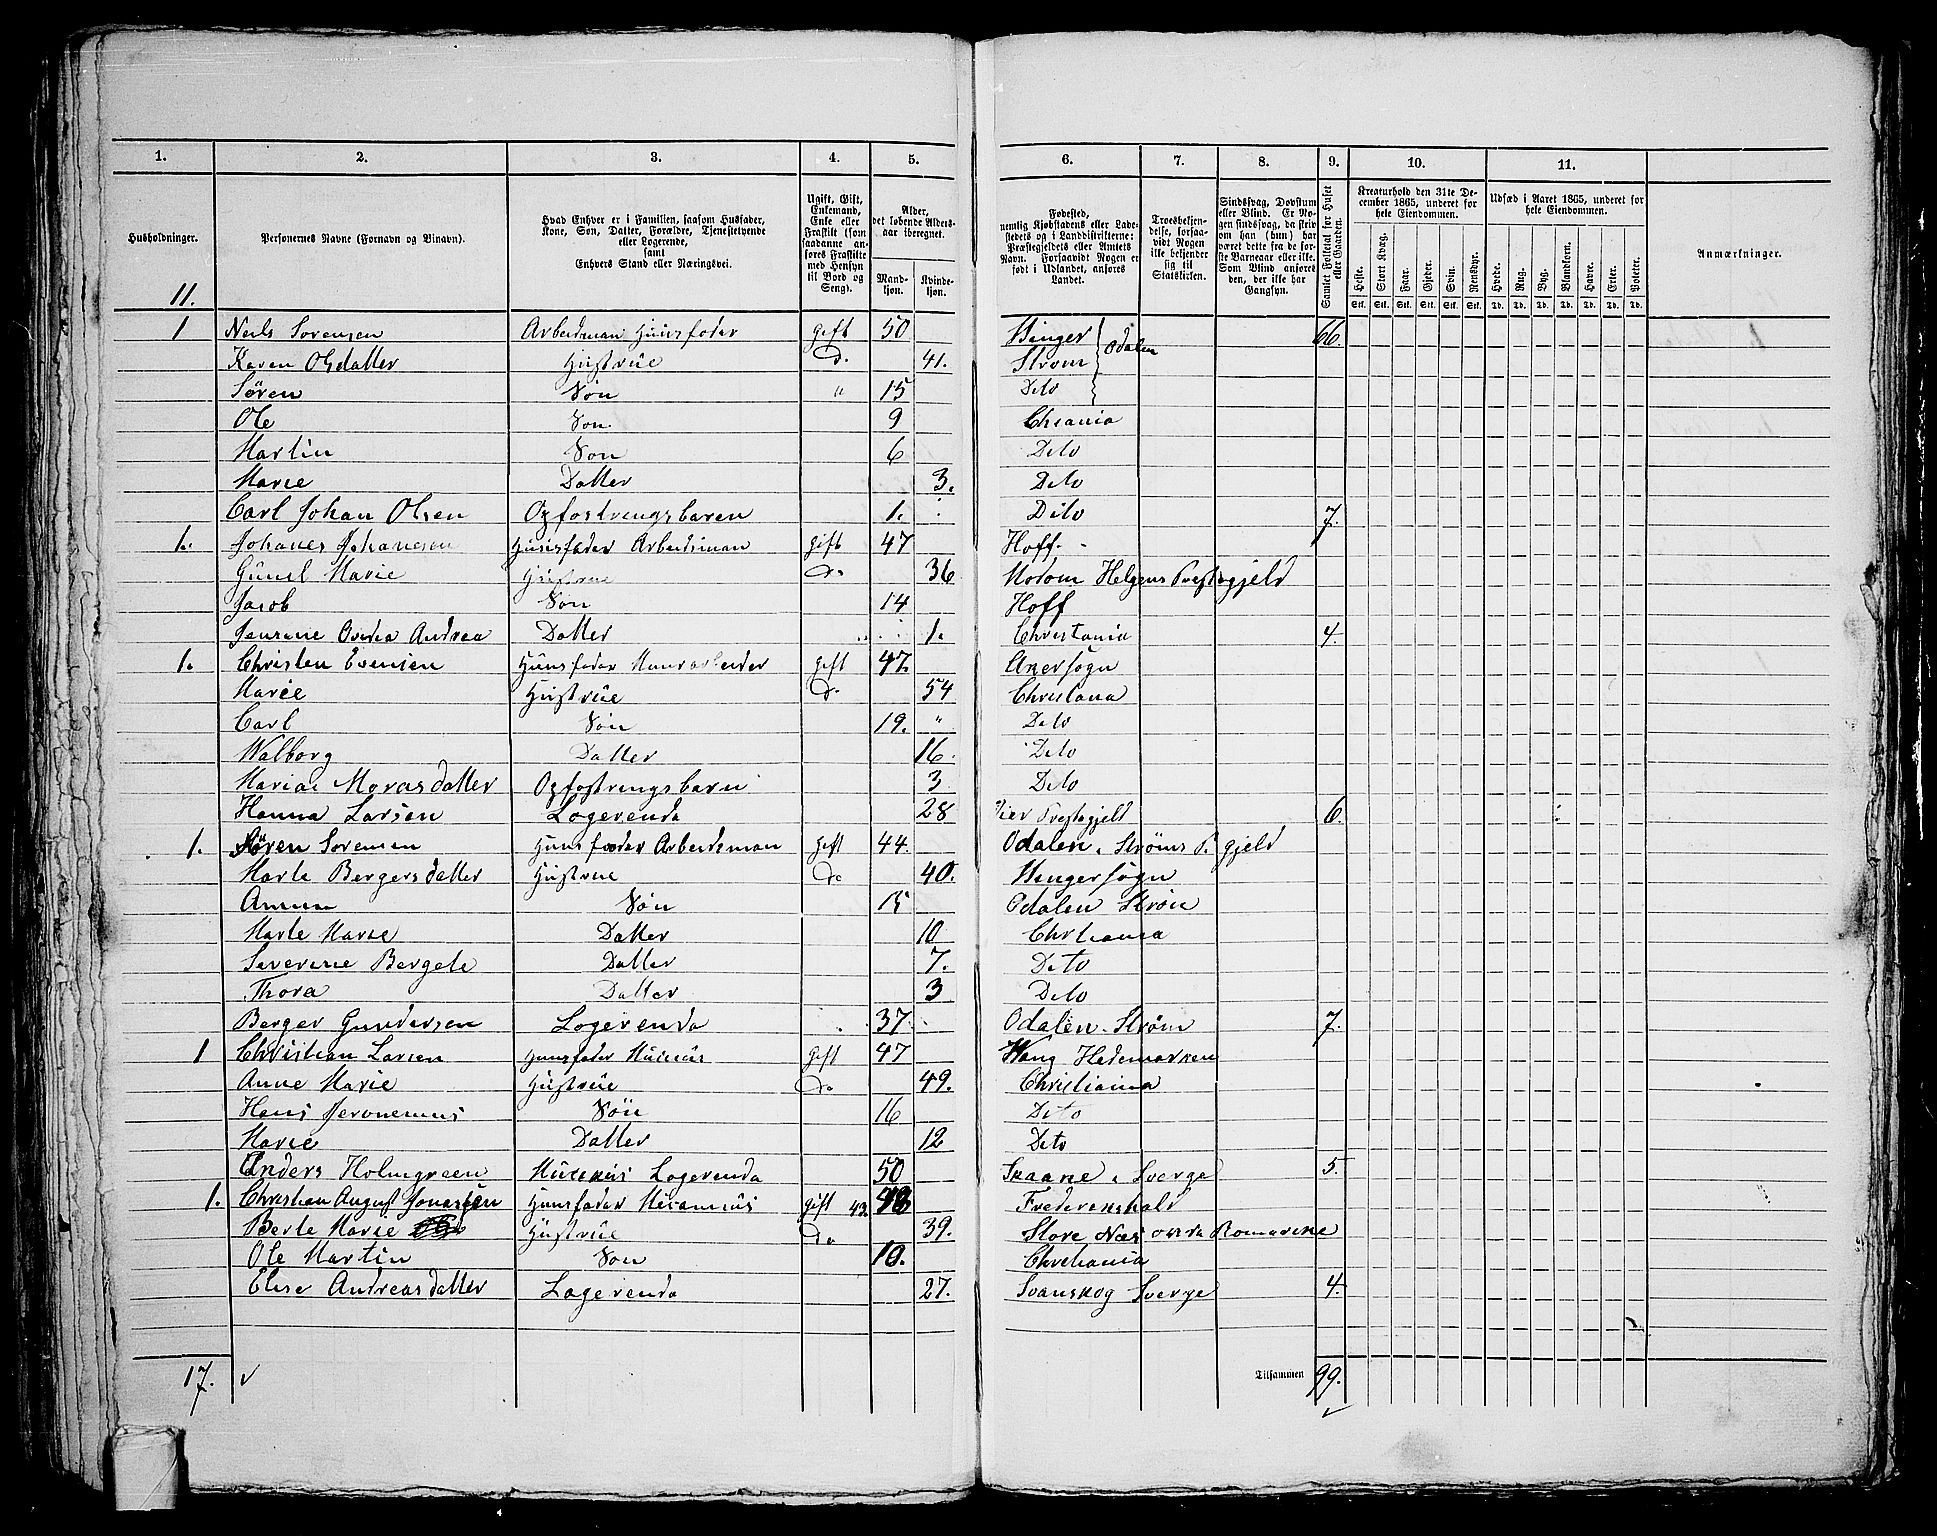 1. 2. 3. 4. 5. 6. 7. 8. 9. 10. 11.
Husholdninger. Personernes Navne (Fornavn og Tilnavn). Hvad Enhver er i Familien, saasom Husfader, Kone, Søn, Datter, Forældre, Tjenestetyende eller Logerende, samt Enhvers Stand eller Næringsvei. Ugift, Gift, Enkemand, Enke eller Fraskilt (som saadanne anføres Fraskilte med Hensyn til Bord og Seng). Alder, det løbende Aldersaar iberegnet. Mandkjøn. Kvindekjøn.
Fødested, nemlig Kjøbstadens eller Ladestedets og i Landdistrikterne: Præstegjeldets eller Amtets Navn. Forsaavidt Nogen er født i Udlandet, anføres Landet. Troesbekjendelse, forsaavidt Nogen ikke bekjender sig til Statskirken. Sindssvag, Døvstum eller Blind. Er Nogen sindssvag, da skrives om han (hun) har været dette fra de første Barneaar eller ikke. Som Blind anføres den, der ikke har Gangsyn. Samlet Folketal for Huset eller Gaarden. Kreaturhold den 31te December 1865, underet for hele Eiendommen. Udsæd i Aaret 1865, underet for hele Eiendommen. Anmærkninger.
Heste. Stort Kvæg. Faar. Gjeder. Svin. Rensdyr. Hvede. Rug. Byg. Blandkorn. Havre. Erter. Poteter.
Stk. Stk. Stk. Stk. Stk. Stk. Td. Td. Td. Td. Td. Td. Td.
11.
1 Neels Sorensen Arbeidsman Huusfader gift 50 Winger Odalen 66.
Karen Olsdatter Hustrue Do 41. Strøm
Søren Søn " 15 Deto
Ole Søn 9 Chrania
Martin Søn 6 Deto
Marie Datter 3. Deto
Carl Johan Olsen Opfostringsbaren 1. Dito 7.
1. Johanes Johanesen Huusfader Arbeidsman gift 47 Hoff
Gunil Marie Hustrue Do 36 Modom Helgens Prestegjeld
Jacob Søn 14 Hoff
Jensine Ovidia Andrea Datter 1. Christania 4.
1. Christen Evensen Huusfader Muurarbeider gift 47. Aker Sogn
Marie Hustrue Do 54 Christiana
Carl Søn 19. " Deto
Walborg Datter 16. Deto
Mariae Morasdatter Opfostringsbarn 3 Deto
Hanna Larsen Logerenda 28 Lier Prestegjelt 6.
1. Søren Sorensen Huusfader Arbeidsman gift 44. Odalen, Strøms P. gjeld
Marte Bergersdatter Hustrue Do 40. Winger Sogn
Søn 15 Odalen Strøm
Marte Marie Datter 10 Chrtiania
Severine Bergete Datter 7. Deto
Thora Datter 3 Deto
Berger Gundersen Logerenda 37. Odalen. Strøm 7.
1 Christian Larsen Huusfader gift 47 Wang Hedemarken
Anne Marie Hustrue Do 49. Christiania
Hans Jeronemus Søn 16 Deto
Marie Datter 12 Deto
Anders Holmgreen Logerenda 50 Skaane i Sverge 5.
1. Christian August Jonassen Huusfader gift 43. 43 Frederikshald
Berte Marie Hustrue Do 39. Store Næs Romerike
Ole Martin Søn 10. Christiania
Elise Andreasdatter Logerenda 27. Svanskog Sverge 4.
17. Tilsammen 99.